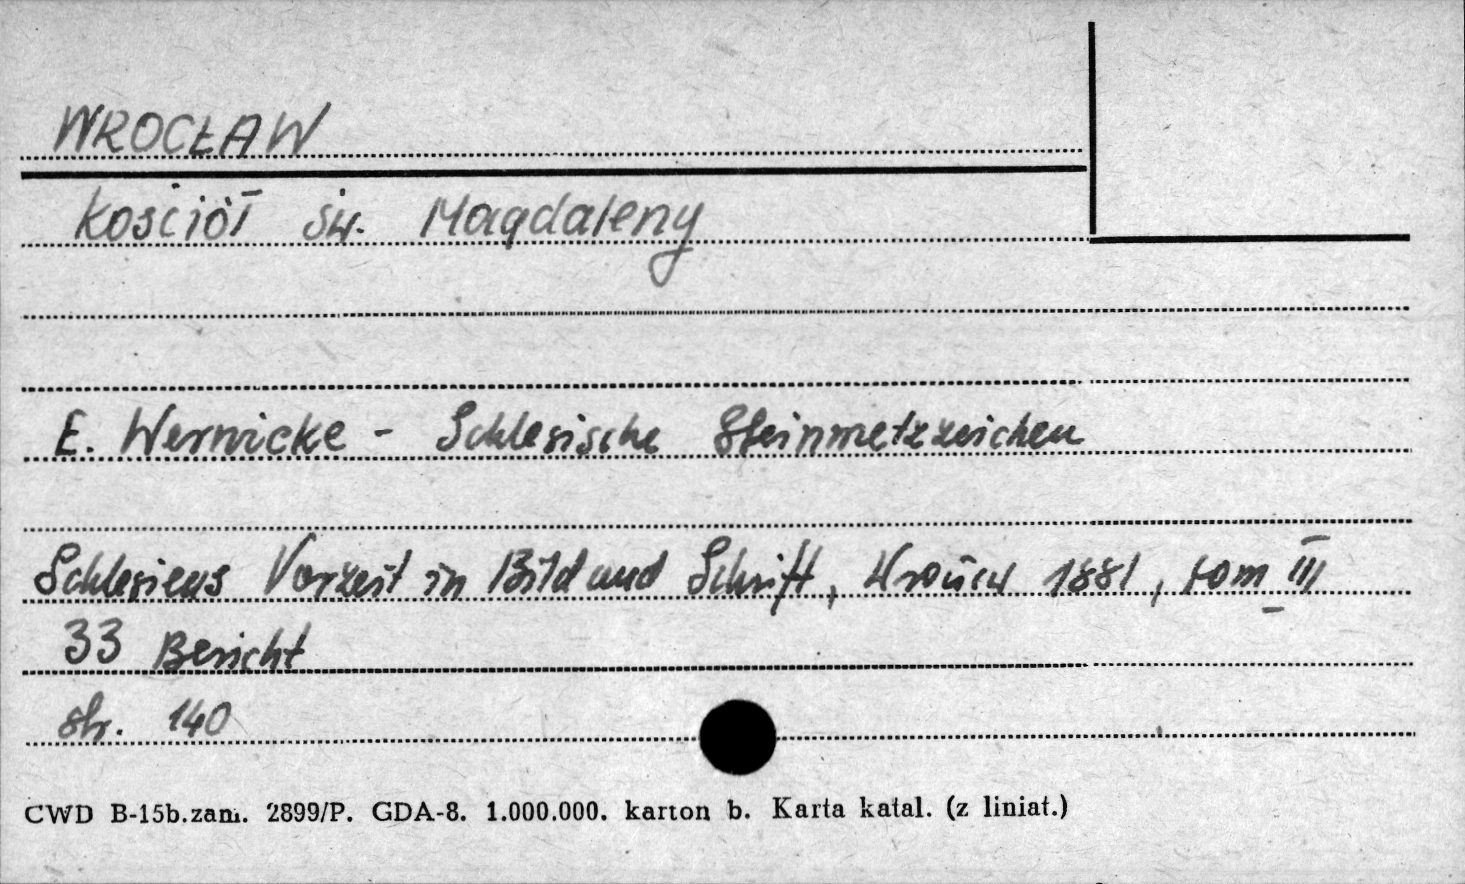 WROCŁAW
kościół św. Magdaleny
E. Wernicke - Schlesische Steinmetzzeichen
Schlesiens Vorzeit in Bild und Schrift, 1881, tom III
33 Bericht
str. 140
CWD B-15b.zam. 2899/P. GDA-8. 1.000.000. karton b. Karta katal. (z liniat.)